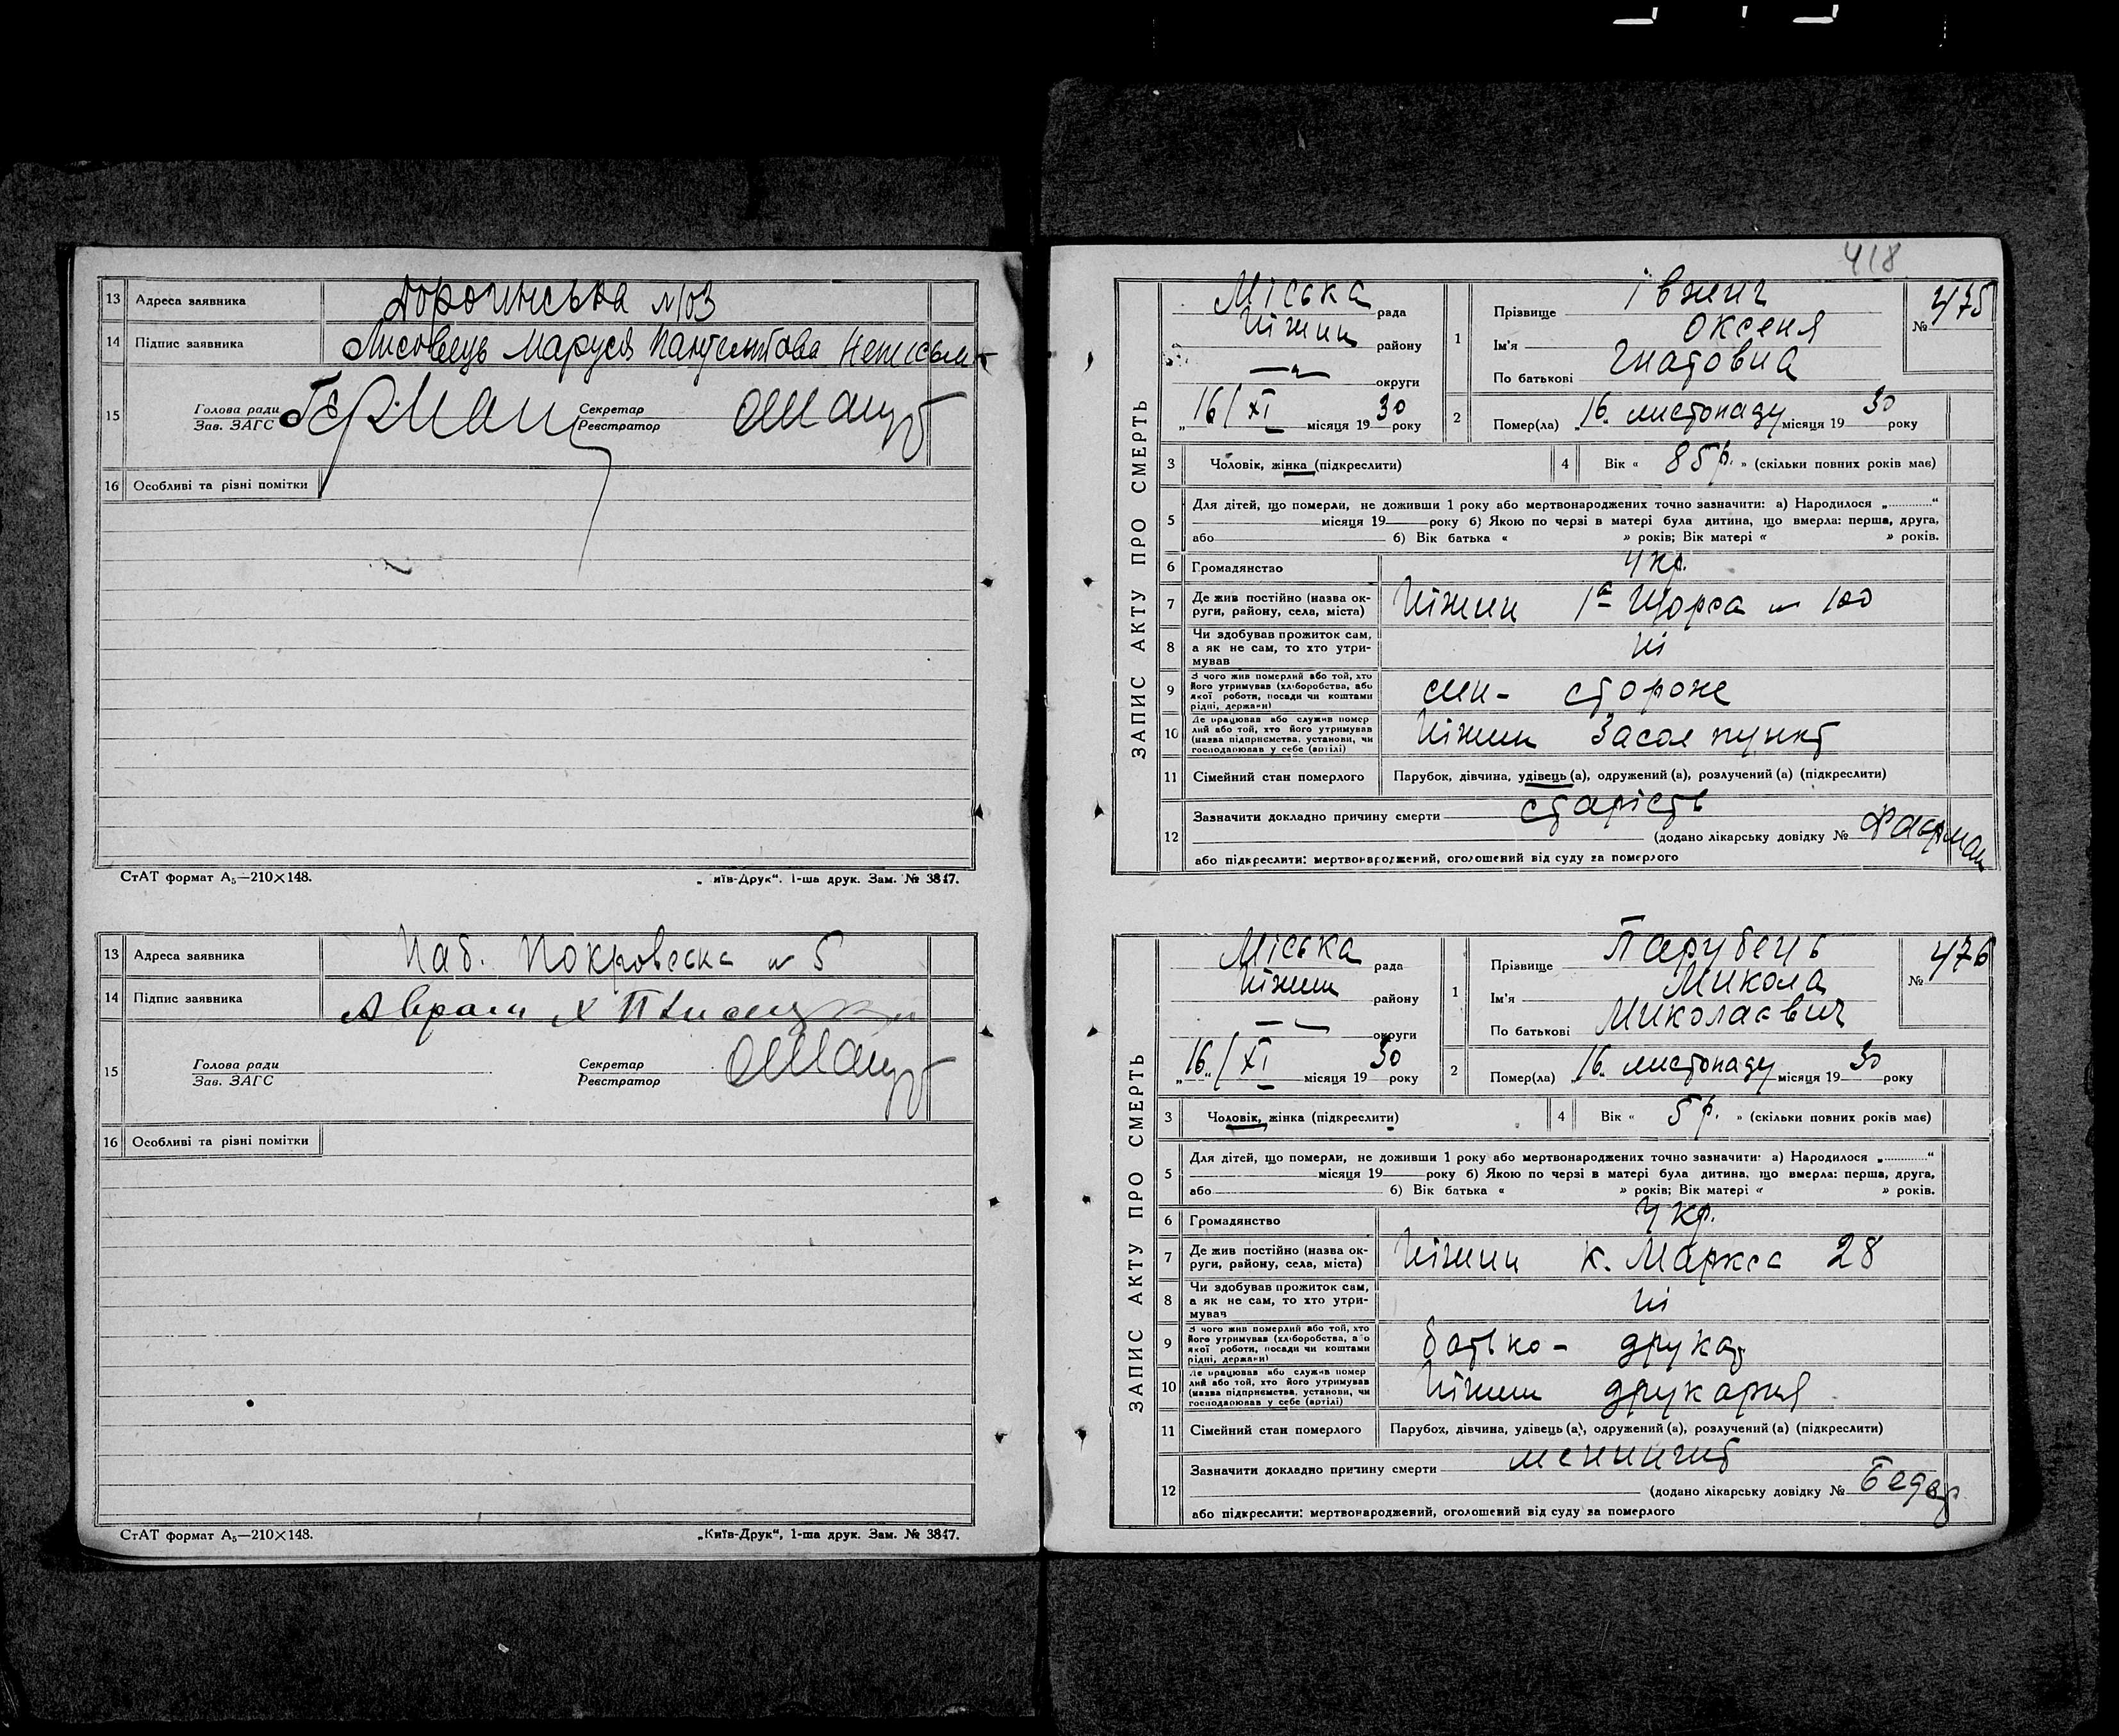 13 Адреса заявника
14 Підпис заявника Лисовець Маруся
15 Голова ради Секретар
Зав. ЗАГС Реєстратор
16 Особливі та різні помітки
СтАТ формат А₅—210×148. иїв-Друк“. 1-ша друк. Зам. № 3847.
13 Адреса заявника Наб. Покровська № 5
14 Підпис заявника
15 Голова ради Секретар
Зав. ЗАГС Реєстратор
16 Особливі та різні помітки
СтАТ формат А₅—210×148. „Київ-Друк“, 1-ша друк. Зам. № 3847.
418
ЗАПИС АКТУ ПРО СМЕРТЬ
Міська рада
Ніжин району
округи
„16/XI місяця 1930 року
№ 475
1 Прізвище
Ім'я Оксеня
По батькові Гнатовна
2 Помер(ла) „16„ листопаду місяця 1930 року
3 Чоловік, жінка (підкреслити) 4 Вік « 85 р. » (скільки повних років має)
5 Для дітей, що померли, не доживши 1 року або мертвонароджених точно зазначити: а) Народилося „..........“
місяця 19 року б) Якою по черзі в матері була дитина, що вмерла: перша, друга,
або б) Вік батька « » років; Вік матері « » років.
6 Громадянство Укр.
7 Де жив постійно (назва ок-
руги, району, села, міста) Ніжин 1ª Щорса № 100
8 Чи здобував прожиток сам,
а як не сам, то хто утри-
мував ні
9 З чого жив померлий або той, хто
його утримував (хліборобства, або
якої роботи, посади чи коштами
рідні, держави) син - стороже
10 Де працював або служив помер
лий або той, хто його утримував
(назва підприємства, установи, чи
господарював у себе (артілі) Ніжин Засол пункт
11 Сімейний стан померлого Парубок, дівчина, удівець (а), одружений (а), розлучений (а) (підкреслити)
12 Зазначити докладно причину смерти старість
(додано лікарську довідку №
або підкреслити: мертвонароджений, оголошений від суду за померлого
ЗАПИС АКТУ ПРО СМЕРТЬ
Міська рада
Ніжин району
округи
„16„/XI місяця 1930 року
№ 476
1 Прізвище Парубець
Ім'я Микола
По батькові Миколаєвич
2 Помер(ла) „16„ листопаду місяця 1930 року
3 Чоловік, жінка (підкреслити) 4 Вік « 5 р. » (скільки повних років має)
5 Для дітей, що померли, не доживши 1 року або мертвонароджених точно зазначити: а) Народилося „..........“
місяця 19 року б) Якою по черзі в матері була дитина, що вмерла: перша, друга,
або б) Вік батька « » років; Вік матері « » років.
6 Громадянство Укр.
7 Де жив постійно (назва ок-
руги, району, села, міста) Ніжин К. Маркса 28
8 Чи здобував прожиток сам,
а як не сам, то хто утри-
мував ні
9 З чого жив померлий або той, хто
його утримував (хліборобства, або
якої роботи, посади чи коштами
рідні, держави) батько - друкар
10 Де працював або служив помер
лий або той, хто його утримував
(назва підприємства, установи, чи
господарював у себе (артілі) Ніжин друкарня
11 Сімейний стан померлого Парубок, дівчина, удівець (а), одружений (а), розлучений (а) (підкреслити)
12 Зазначити докладно причину смерти менингит
(додано лікарську довідку №
або підкреслити: мертвонароджений, оголошений від суду за померлого